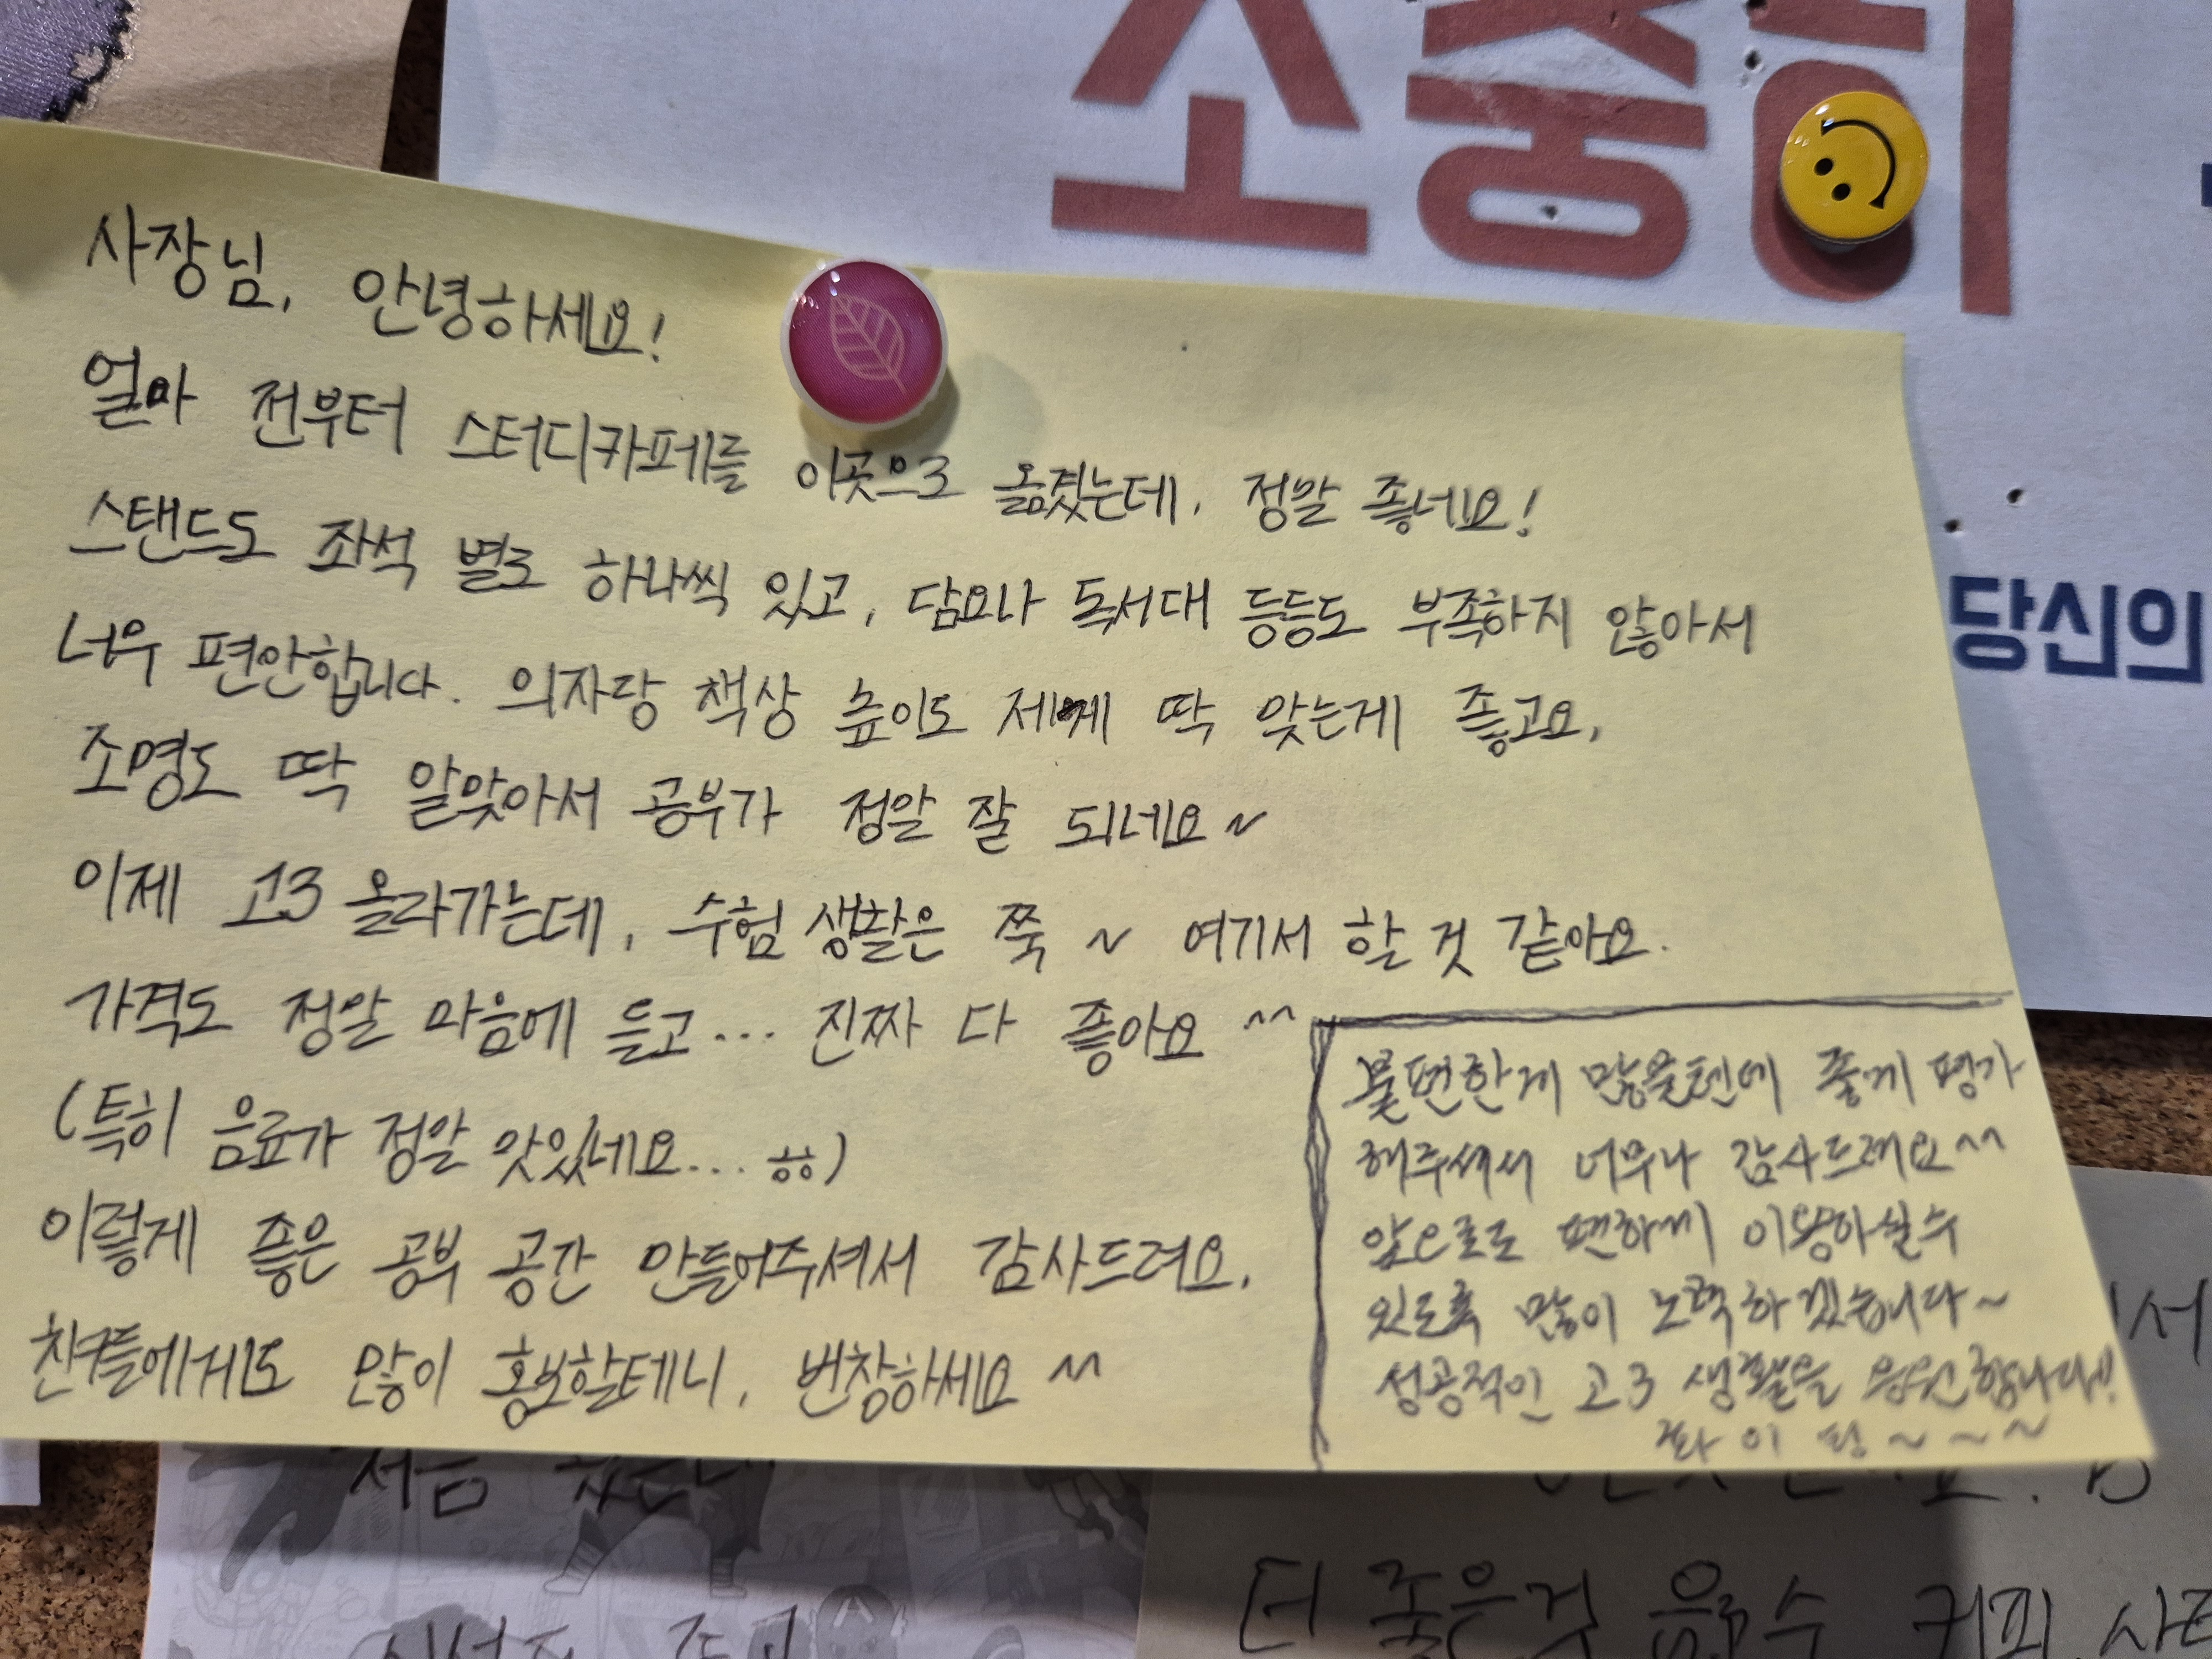 소중히
당신의
사장님, 안녕하세요!
얼마 전부터 스터디카페를 이곳으로 옮겼는데, 정말 좋네요!
스탠드도 좌석 별로 하나씩 있고, 담요나 독서대 등등도 부족하지 않아서
너무 편안합니다. 의자당 책상 높이도 제게 딱 맞는게 좋고요,
조명도 딱 알맞아서 공부가 정말 잘 되네요~
이제 고3 올라가는데, 수험 생활은 쭉 ~ 여기서 할 것 같아요.
가격도 정말 마음에 들고... 진짜 다 좋아요 ^^
(특히 음료가 정말 맛있네요... ㅎㅎ)
이렇게 좋은 공부 공간 만들어주셔서 감사드려요,
친구들에게도 많이 홍보할테니, 번창하세요 ^^
불편한게 많을텐데 좋게 평가
해주셔서 너무나 감사드려요^^
앞으로도 편하게 이용하실수
있도록 많이 노력하겠습니다~
성공적인 고3 생활을 응원합니다!!
화이팅~~~
처음
더 좋은것 음료수 커피